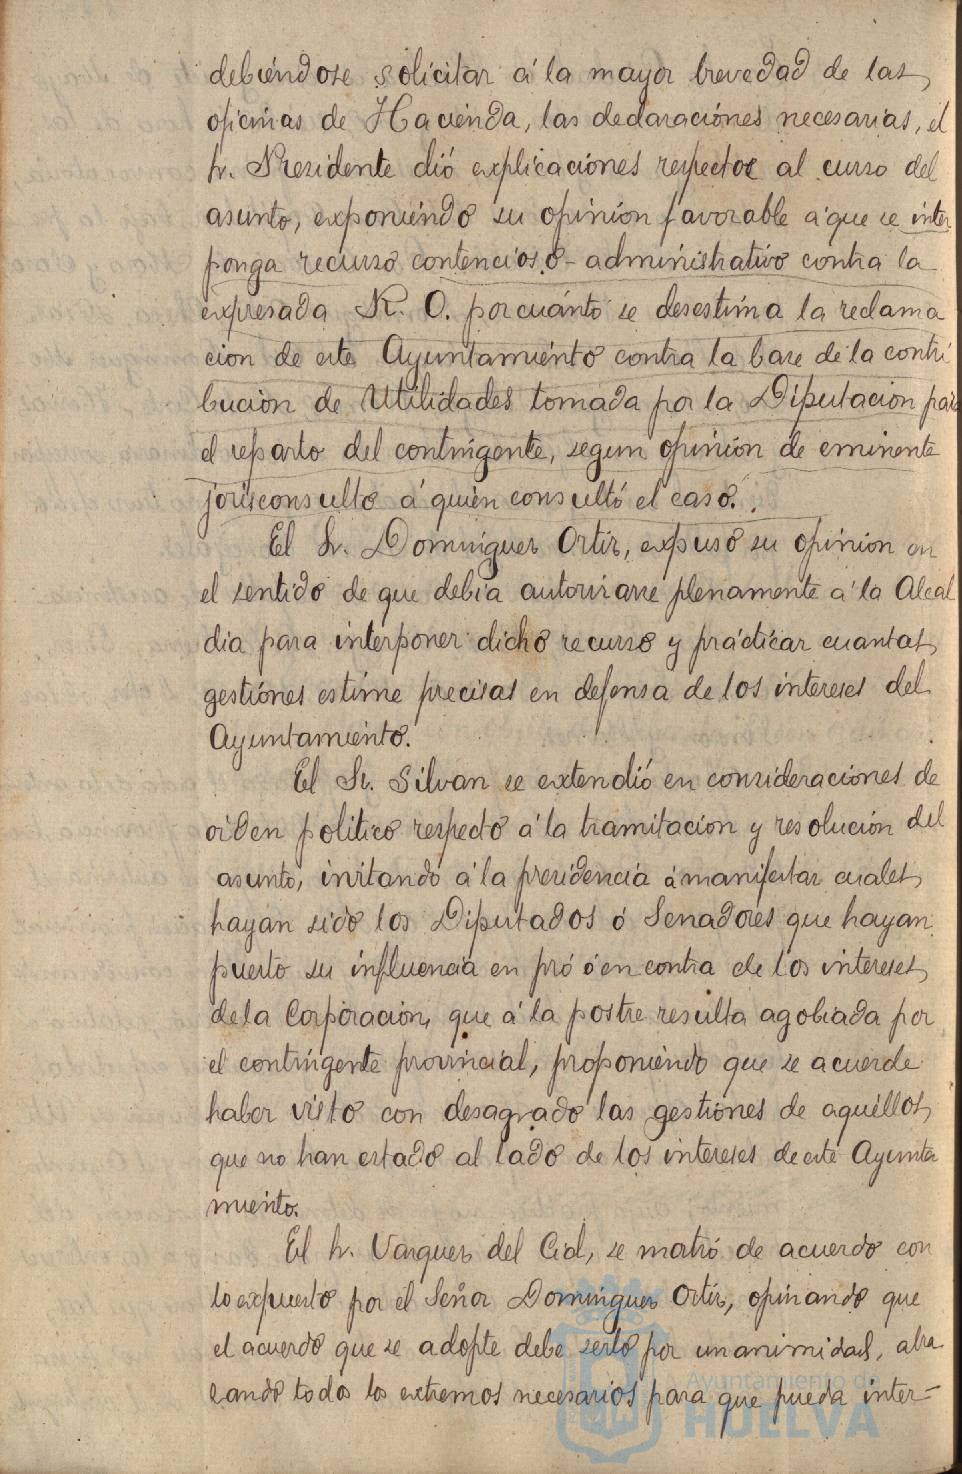 debiéndose solicitar á la mayor brevedad de las
oficinas de Hacienda, las declaraciones necesarias, el
Sr. Presidente dió explicaciones respecto al curso del
asunto, exponiendo su opinión favorable á que se inter
ponga recurso contencioso-administrativo contra la
expresada R. O. por cuánto se desestima la reclama
cion de este Ayuntamiento contra la base de la contri
bución de Utilidades tomada por la Diputación para
el reparto del contingente, segun opinión de eminente
jorisconsulto á quién consultó el caso.
El Sr. Dominguez Ortiz, expuso su opinion en
el sentido de que debia autorizarse plenamente á la Alcal
dia para interponer dicho recurso y practicar cuantas
gestiones estime precisas en defensa de los intereses del
Ayuntamiento.
El Sr. Silvan se extendió en consideraciones de
orden politico respecto á la tramitacion y resolución del
asunto, invitando á la presidencia á manifestar cuales
hayan sido los Diputados ó Senadores que hayan
puesto su influencia en pró ó en contra de los intereses
de la Corporación, que á la postre resulta agobiada por
el contingente provincial, proponiendo que se acuerde
haber visto con desagrado las gestiones de aquéllos
que no han estado al lado de los intereses de este Ayunta
miento.
El Sr. Vazquez del Cid, se mostró de acuerdo con
lo expuesto por el Señor Dominguez Ortiz, opinando que
el acuerdo que se adopte debe serlo por unanimidad, abra
zando todos los extremos necesarios para que pueda inter=
Ayuntamiento de
HUELVA